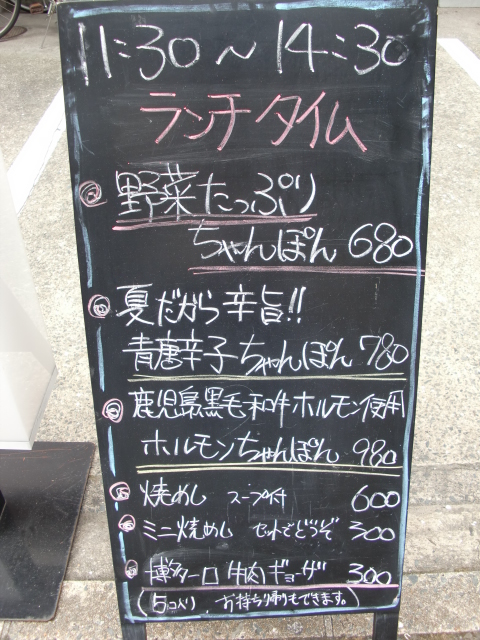 11:30〜14:30
ランチタイム
野菜たっぷり
ちゃんぽん 680
夏だから辛旨!!
青唐辛子ちゃんぽん 780
鹿児島黒毛和牛ホルモン使用
ホルモンちゃんぽん 980
焼めし スープ付 600
ミニ焼めし セットでどうぞ 300
博多一口牛肉ギョーザ 300
(5コ入り お持ち帰りもできます。)